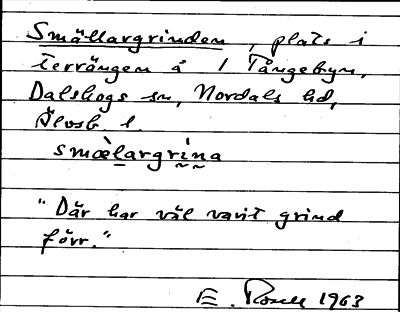 Smällargrinden, plats i
terrängen å 1 Tångebyn,
Dalskogs sn, Nordals hd,
Älvsb. l.
smæ̀largrı̀na
"Där har väl varit grind
förr."
E. 1963